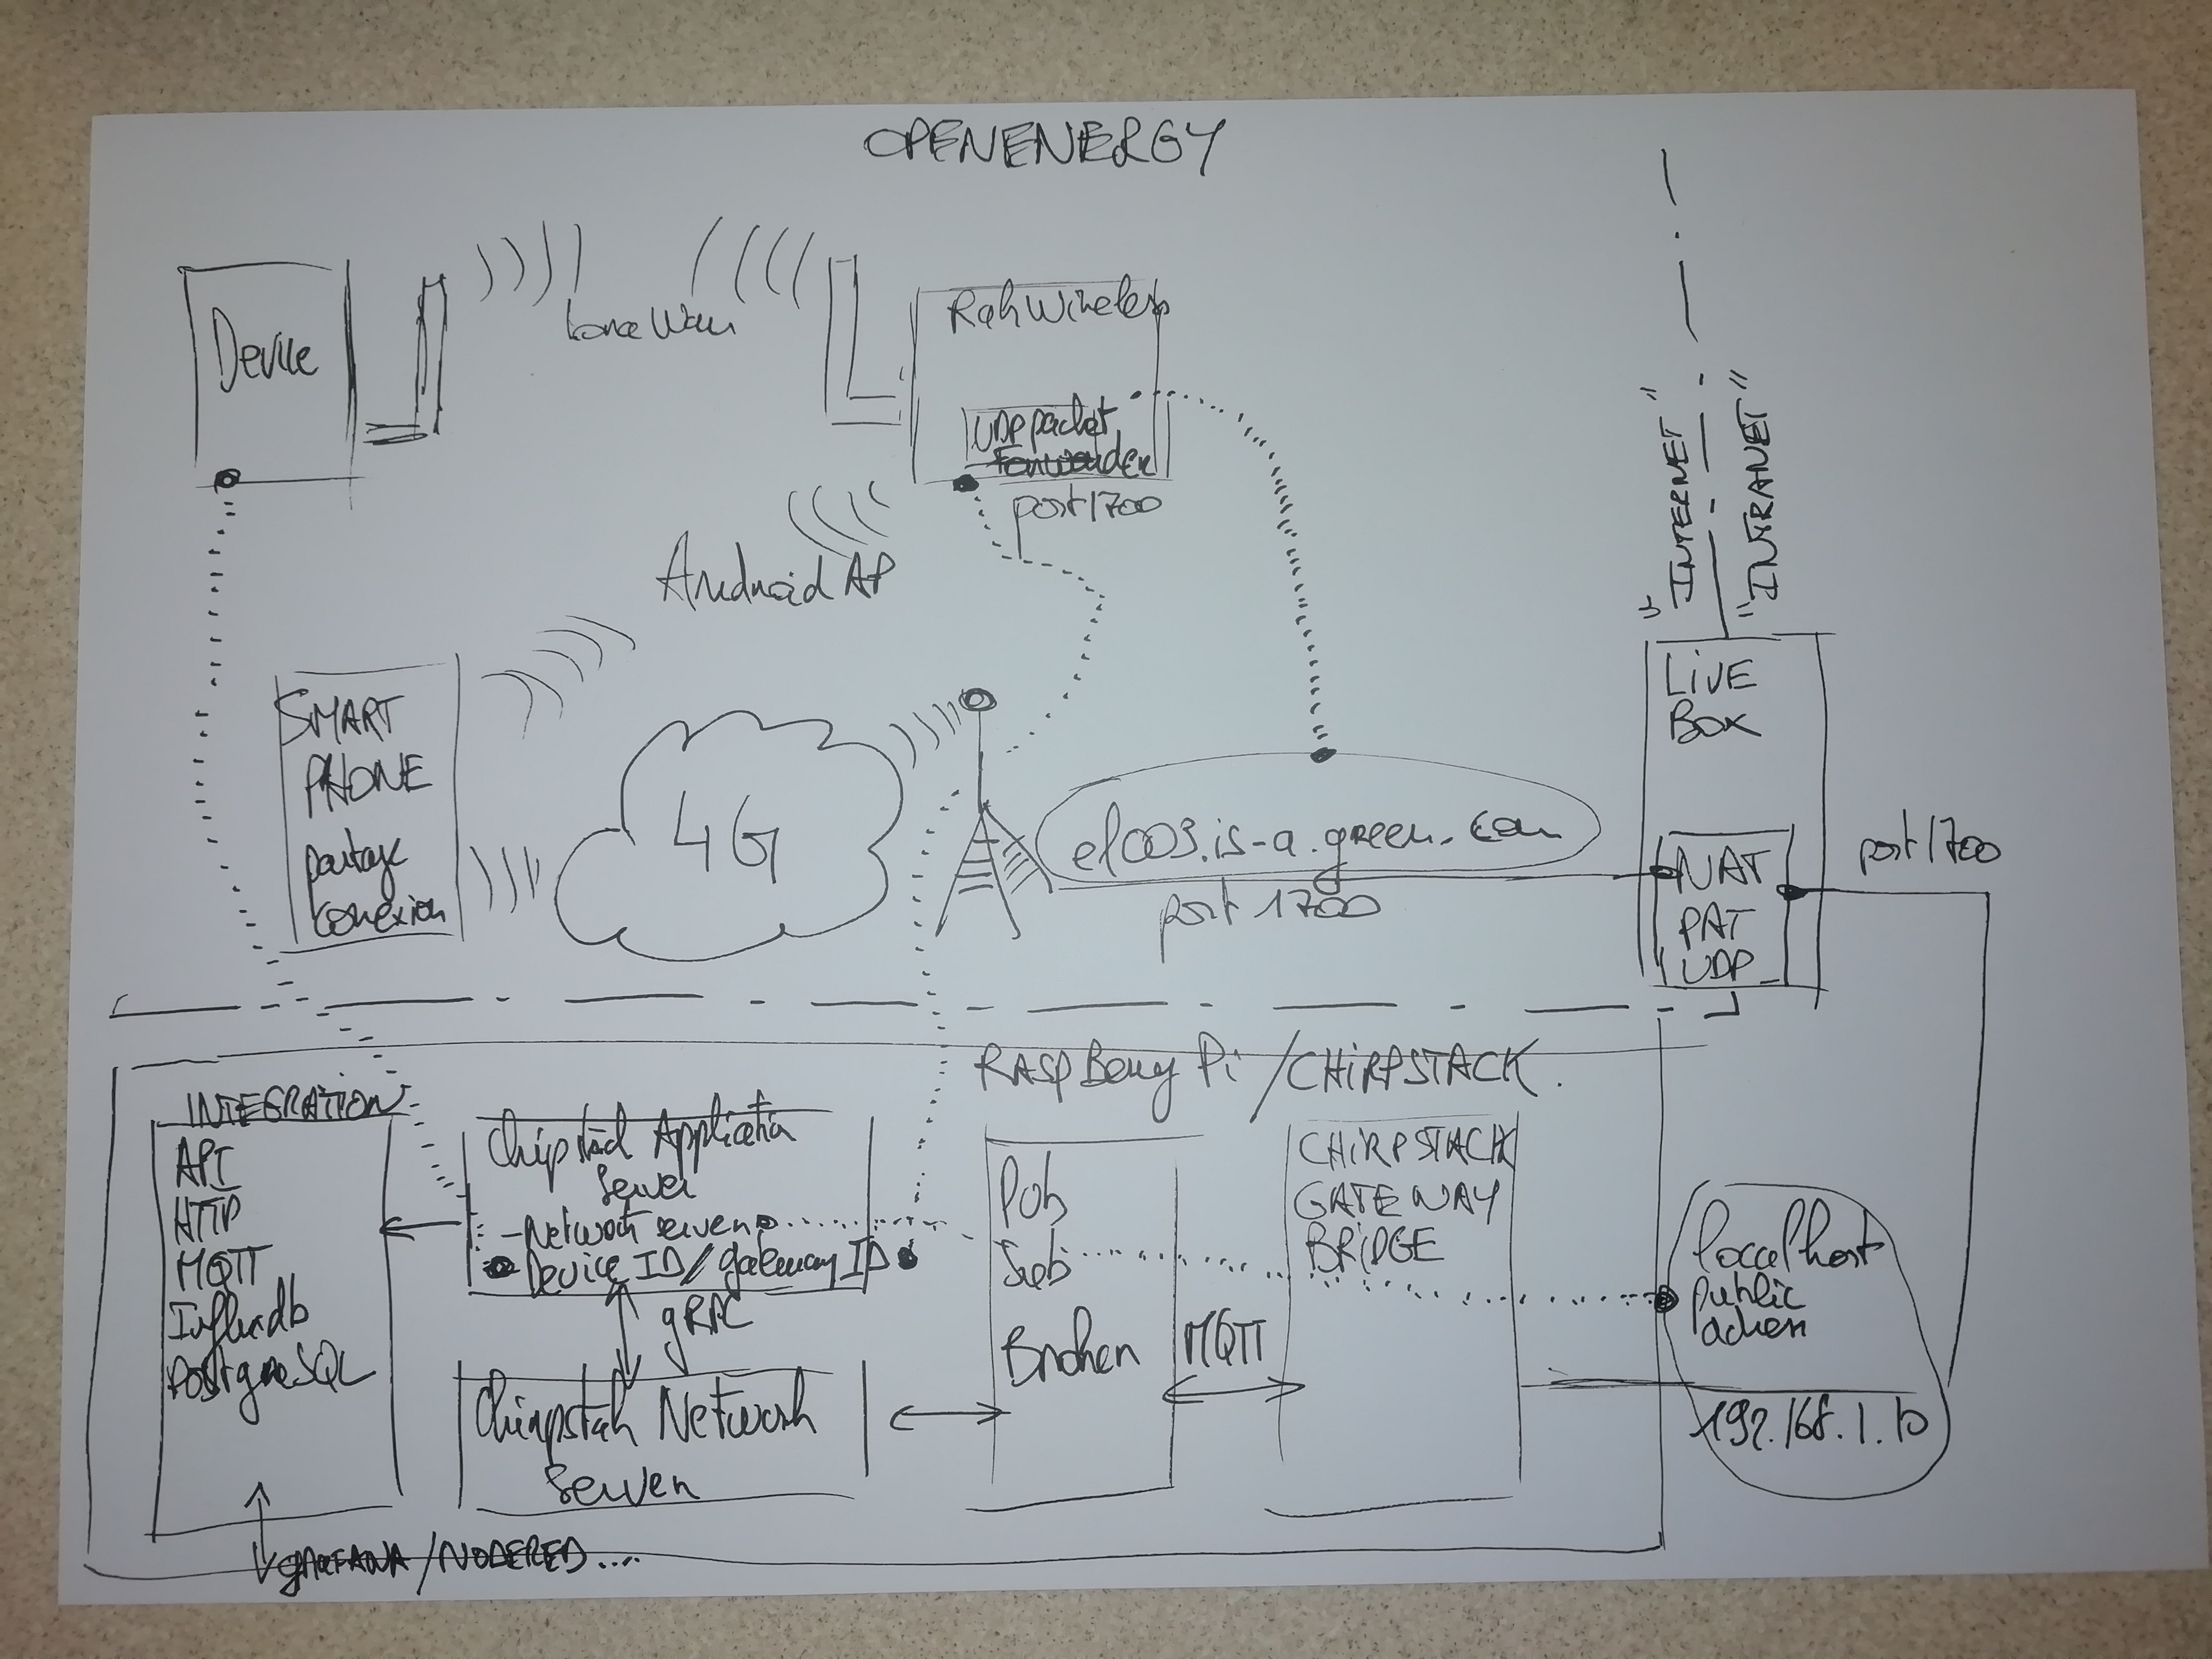 OPENENERGY
Device
LoraWan
RakWireless
UDP packet
Forwarder
port 1700
Android AP
"INTERNET"
"INTRANET"
SMART
PHONE
partage
conexion
4G
el003.is-a.green.com
port 1700
LIVE
BOX
NAT
PAT
UDP
port 1700
RASPBerry Pi /CHIRPSTACK.
INTEGRATION
API
HTTP
MQTT
Influxdb
PostgreSQL
Chipstack Application
Server
-Network server
Device ID/gateway ID
gRPC
Chirpstak Network
Server
Pub
Sub
Broker
MQTT
CHIRPSTACK
GATEWAY
BRIDGE
localhost
public
192.168.1.10
GRAFANA /NODERED....